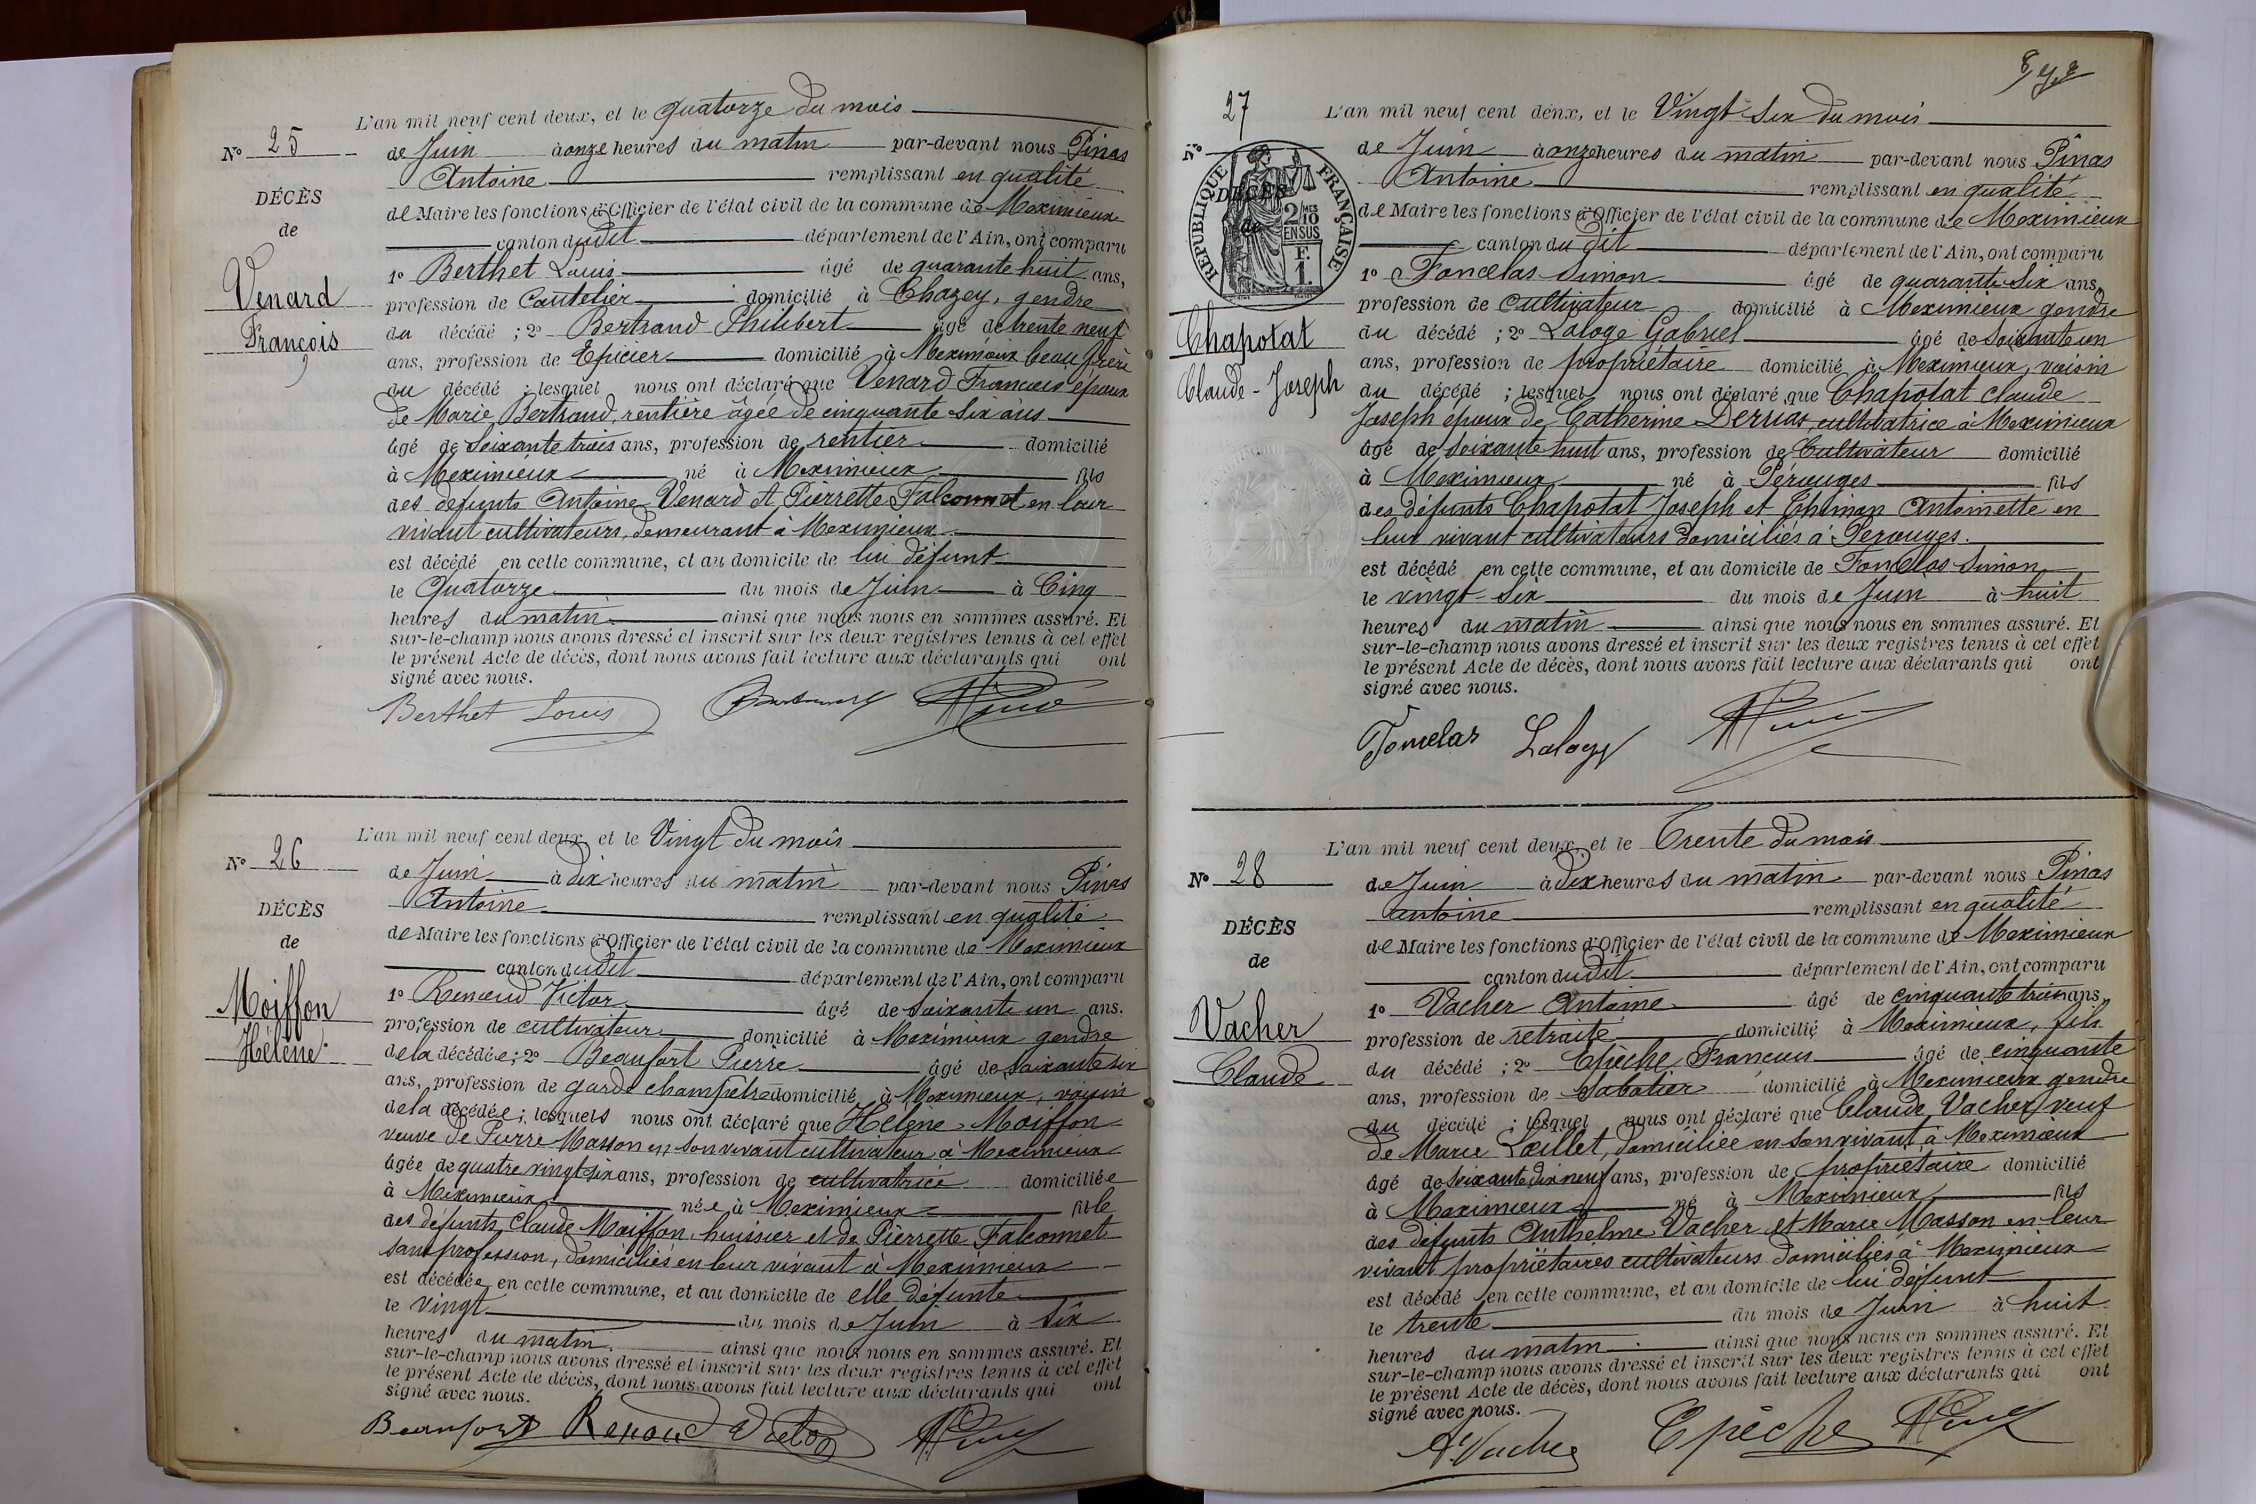 L'an mil neuf cent deux, et le quatorze du mois
N° 25
de Juin à onze heures du matin par-devant nous Pinas
Antoine remplissant en qualité
DÉCÈS
de Maire les fonctions d'Officier de l'état civil de la commune de Meximieux
de
canton dudit département de l'Ain, ont comparu
1° Berthet Louis âgé de quarante huit ans,
Venard
profession de Coutelier domicilié à Chazey, gendre
François
du décédé ; 2° Bertrand Philibert âgé de trente neuf
ans, profession de Epicier domicilié à Meximieux beau frère
du décédé ; lesquel nous ont déclaré que Venard François époux
de Marie Bertrand, rentière âgée de cinquante six ans
âgé de soixante trois ans, profession de rentier domicilié
à Meximieux né à Meximieux fils
des défunts Antoine Venard et Pierrette Falconnet en leur
vivant cultivateurs, demeurant à Meximieux
est décédé en cette commune, et au domicile de lui défunt
le Quatorze du mois de Juin à Cinq
heures du matin ainsi que nous nous en sommes assuré. Et
sur-le-champ nous avons dressé et inscrit sur les deux registres tenus à cet effet
le présent Acte de décès, dont nous avons fait lecture aux déclarants qui ont
signé avec nous.
Berthet Louis
L'an mil neuf cent deux, et le Vingt du mois
N° 26
de Juin à dix heures du matin par-devant nous Pinas
Antoine remplissant en qualité
DÉCÈS
de Maire les fonctions d'Officier de l'état civil de la commune de Meximieux
de
canton dudit département de l'Ain, ont comparu
Moiffon
1° Renaud Victor âgé de soixante un ans.
Hélène
profession de cultivateur domicilié à Meximieux gendre
de la décédée ; 2° Beaufort Pierre âgé de soixante six
ans, profession de garde champêtre domicilié à Meximieux, voisin
de la décédée ; lesquels nous ont déclaré que Hélène Moiffon
veuve de Pierre Masson en son vivant cultivateur à Meximieux
âgée de quatre vingt six ans, profession de cultivatrice domiciliée
à Meximieux née à Meximieux fille
des défunts Claude Moiffon, huissier et de Pierrette Falconnet
sans profession, domiciliés en leur vivant à Meximieux
est décédée en cette commune, et au domicile de elle défunte
le vingt du mois de Juin à six
heures du matin. ainsi que nous nous en sommes assuré. Et
sur-le-champ nous avons dressé et inscrit sur les deux registres tenus à cet effet
le présent Acte de décès, dont nous avons fait lecture aux déclarants qui ont
signé avec nous.
Beaufort Renaud Victor
27
L'an mil neuf cent deux, et le Vingt-six du mois
N°
de Juin à onze heures du matin par-devant nous Pinas
Antoine remplissant en qualité
RÉPUBLIQUE FRANÇAISE
DÉCÈS
2/10 MES
EN SUS
F.
1.
de
de Maire les fonctions d'Officier de l'état civil de la commune de Meximieux
canton du dit département de l'Ain, ont comparu
1° Fonclas Simon âgé de quarante six ans,
profession de cultivateur domicilié à Meximieux gendre
Chapotat
du décédé ; 2° Laloge Gabriel âgé de soixante un
ans, profession de propriétaire domicilié à Meximieux, voisin
Claude-Joseph
du décédé ; lesquel nous ont déclaré que Chapotat Claude
Joseph époux de Catherine Derrias, cultivatrice à Meximieux
âgé de soixante huit ans, profession de Cultivateur domicilié
à Meximieux né à Pérouges fils
des défunts Chapotat Joseph et Antoinette en
leur vivant cultivateurs domiciliés à Pérouges.
est décédé en cette commune, et au domicile de Fonclas Simon
le vingt-six du mois de Juin à huit
heures du matin ainsi que nous nous en sommes assuré. Et
sur-le-champ nous avons dressé et inscrit sur les deux registres tenus à cet effet
le présent Acte de décès, dont nous avons fait lecture aux déclarants qui ont
signé avec nous.
Fonclas Laloge
L'an mil neuf cent deux, et le Trente du mois
N° 28
de Juin à dix heures du matin par-devant nous Pinas
Antoine remplissant en qualité
DÉCÈS
de Maire les fonctions d'Officier de l'état civil de la commune de Meximieux
de
canton dudit département de l'Ain, ont comparu
Vacher
1° Vacher Antoine âgé de cinquante trois ans,
profession de retraité domicilié à Meximieux, fils
Claude
du décédé ; 2° Epèche François âgé de cinquante
ans, profession de Sabotier domicilié à Meximieux gendre
du décédé ; lesquel nous ont déclaré que Claude Vacher veuf
de Marie Lœillet, domiciliée en son vivant à Meximieux
âgé de soixante dix neuf ans, profession de propriétaire domicilié
à Meximieux né à Meximieux fils
des défunts Anthelme Vacher et Marie Masson en leur
vivant propriétaires cultivateurs domiciliés à Meximieux
est décédé en cette commune, et au domicile de lui défunt
le trente du mois de Juin à huit
heures du matin. ainsi que nous nous en sommes assuré. Et
sur-le-champ nous avons dressé et inscrit sur les deux registres tenus à cet effet
le présent Acte de décès, dont nous avons fait lecture aux déclarants qui ont
signé avec nous.
A. Vacher Epèche